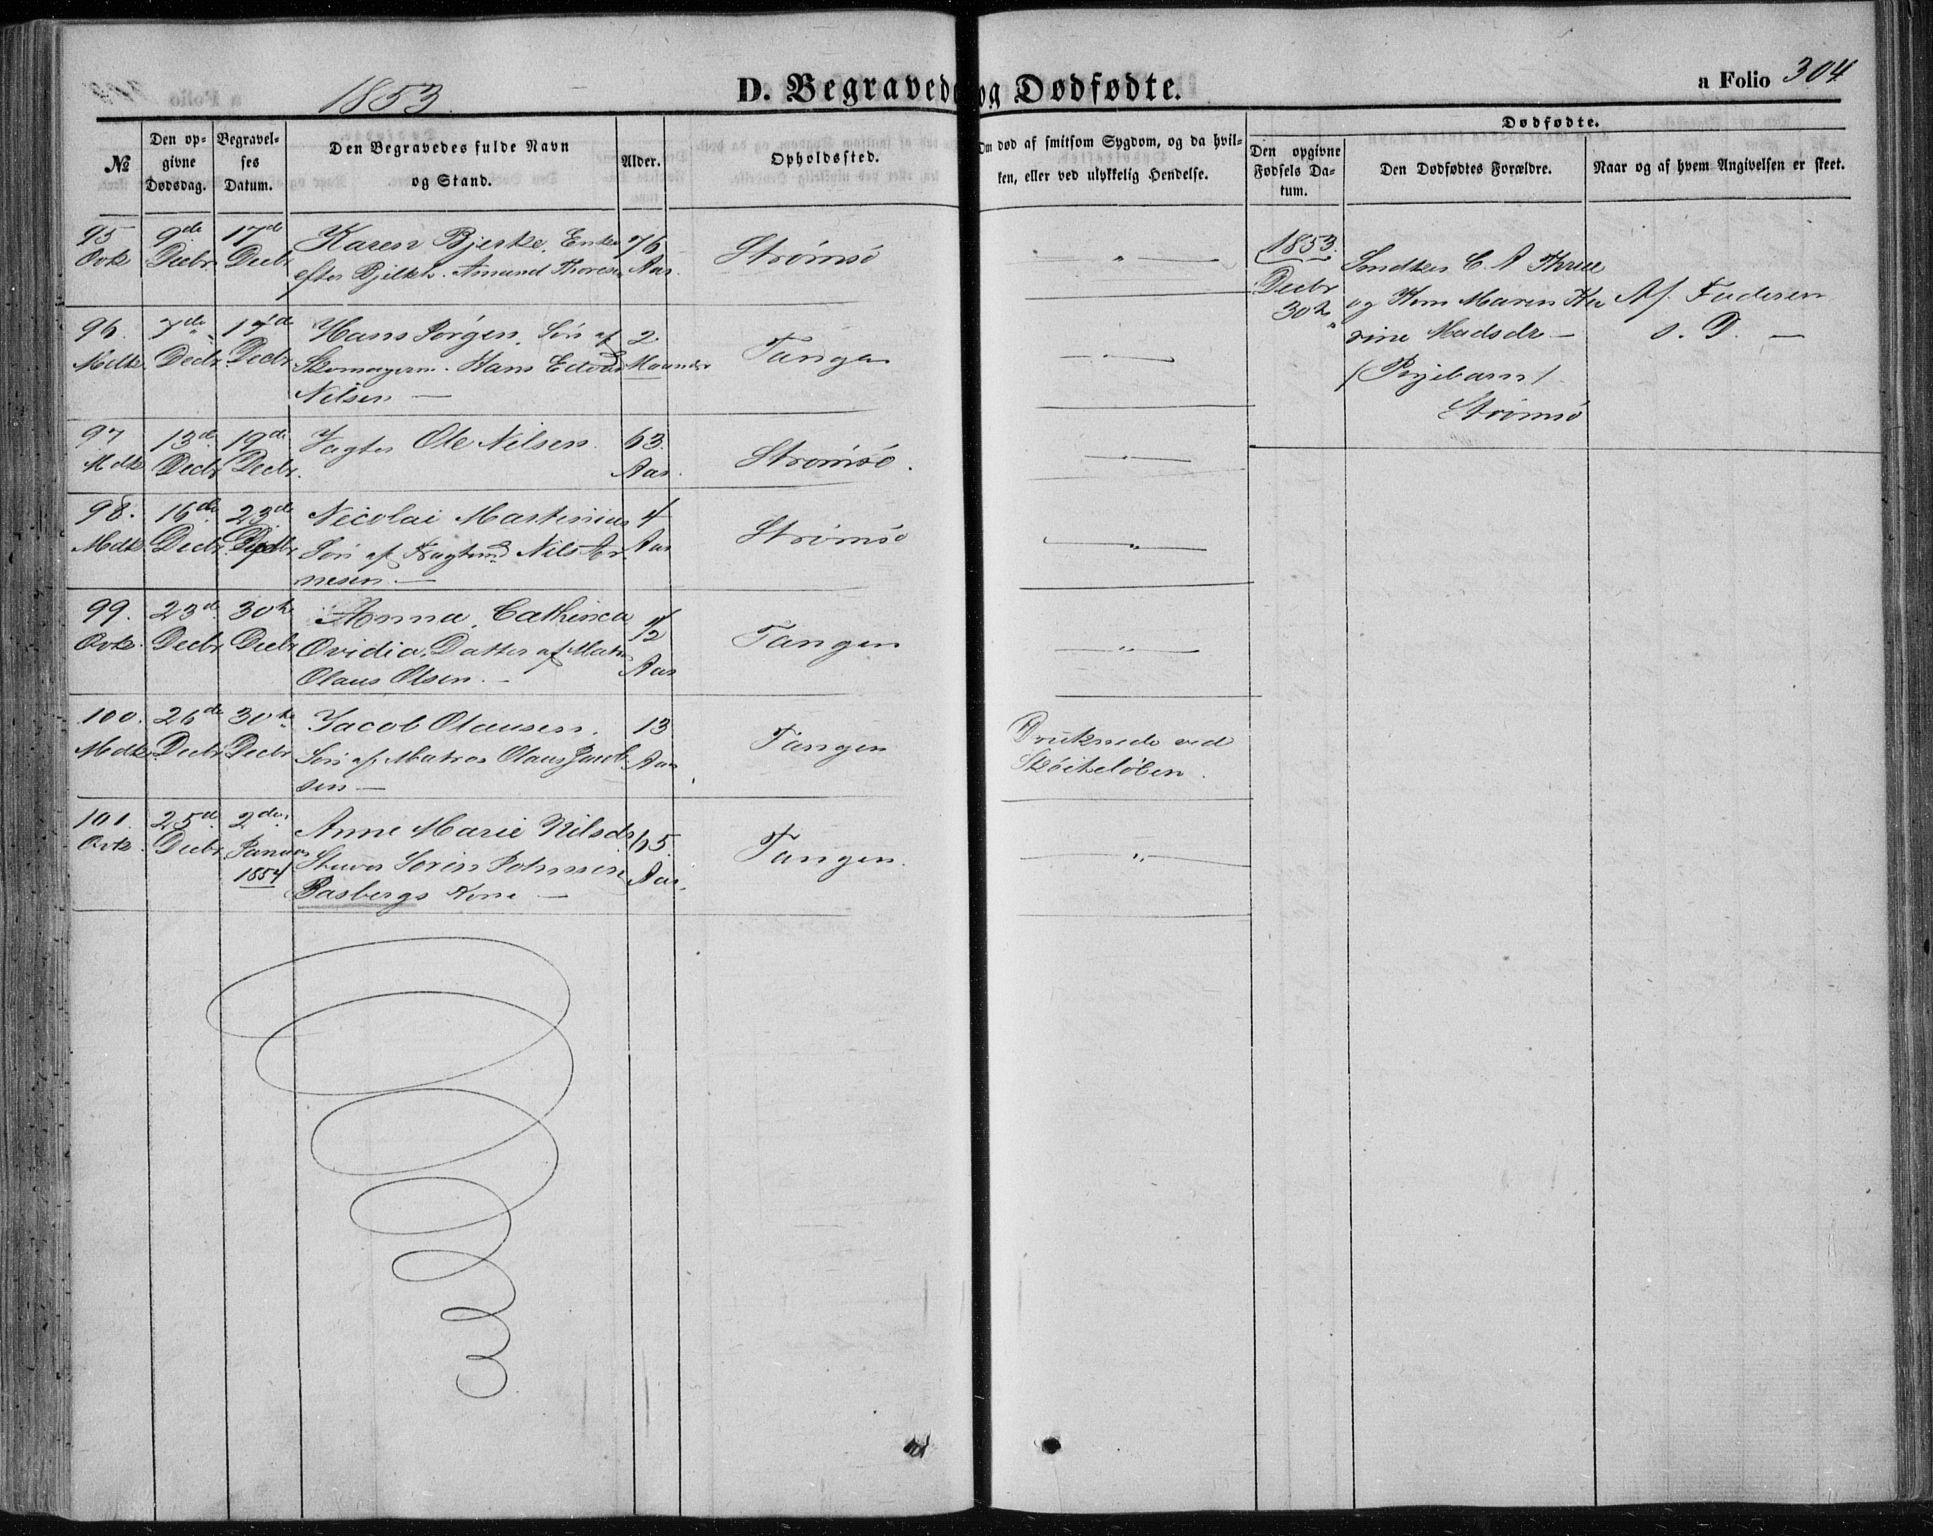 1853.
D. Begravede og Dødfødte.
a Folio 304
№
Den opgivne Dødsdag.
Begravelses Datum.
Den Begravedes fulde Navn og Stand.
Alder.
Opholdssted.
Om død af smitsom Sygdom, og da hvilken, eller ved ulykkelig Hendelse.
Dødfødte.
Den opgivne Fødsels Datum.
Den Dødfødtes Forældre.
Naar og af hvem Angivelsen er skeet.
95 9de 17de Karen Bjerke, Enke 76 Strømsø
Qvk Decbr Decbr efter Amund Thoresen Aar.
96. 7de 17de Hans Jørgen, Søn af 2. Tangen
Mdk. Decbr Decbr Skomagersv. Hans Edvard Maaneder
Nilsen —
97 13de 19de Vægter Ole Nilsen. 63. Strømsø.
Mdk. Decbr. Decbr. Aar.
98. 16de 23de Nicolai Martinius 4 Strømsø
Mdk. Decbr Decbr Søn af Nils Ar- Aar
nesen. —
99. 23de 30te Anna Cathinca 1/2 Tangen
Qvk. Decbr. Decbr Ovidia, Datter af Matr. Aar
Olaus Olsen. —
100. 26de 30te Jacob Olausen. 13 Tangen Druknede ved
Mdk. Decbr Decbr Søn af Matros Olaus Jacob- Aar Skøiteløben.
sen —
101. 25de 2den Anne Marie Nilsdr 65 Tangen.
Qvk. Decbr Januar Stuver Søren Johnsen Aar.
1854 Basbergs Kone —
1853.
Decbr 30te
Snedker C. A
og Kone Maren Ka Af Faderen
rine Madsdr — s. D. —
(Pigebarn)
Strømsø